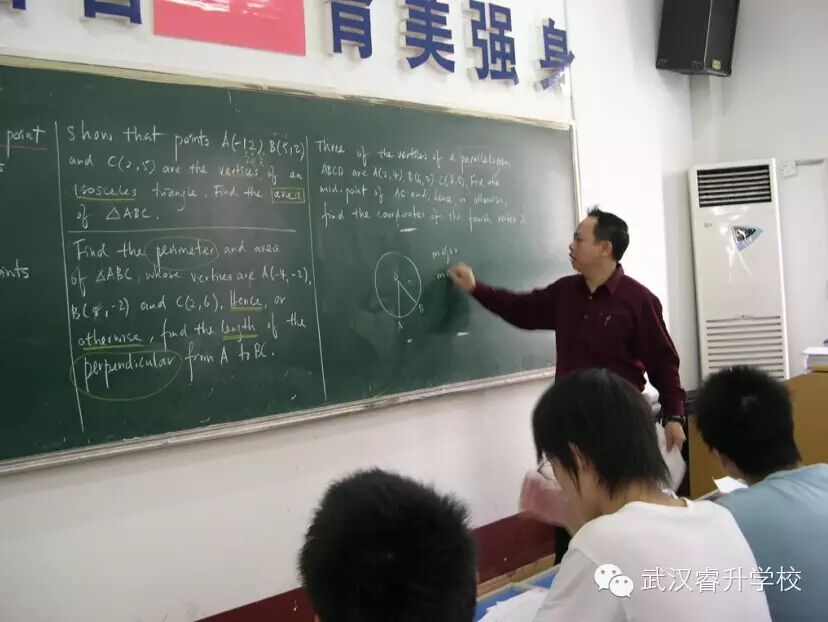 育美强身
point
show that points A(-1,2), B(5,2)
and C(2,5) are the vertices of an
isosceles triangle. Find the area
of △ABC.
Find the perimeter and area
of △ABC, whose vertices are A(-4,-2),
B(8,-2) and C(2,6). Hence, or
otherwise, find the length of the
perpendicular from A to BC.
Three of the vertices of a parallelogram
ABCD are A(2,4) B(6,2) C(8,6). Find the
mid-point of AC and, hence or otherwise,
find the coordinates of the fourth vertex D.
major
A
B
武汉睿升学校